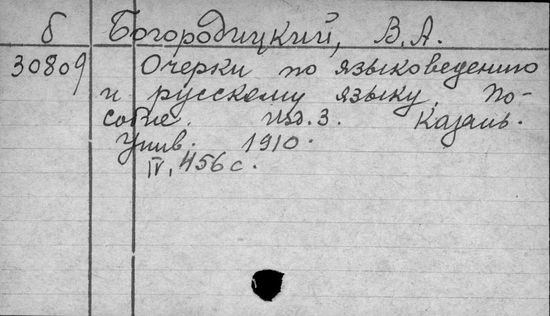 б Богородицкий, В.А.
30809 Очерки по языковедению
и русскому языку. По-
собие. Изд. 3. Казань.
Унив. 1910.
IV, 456 с.